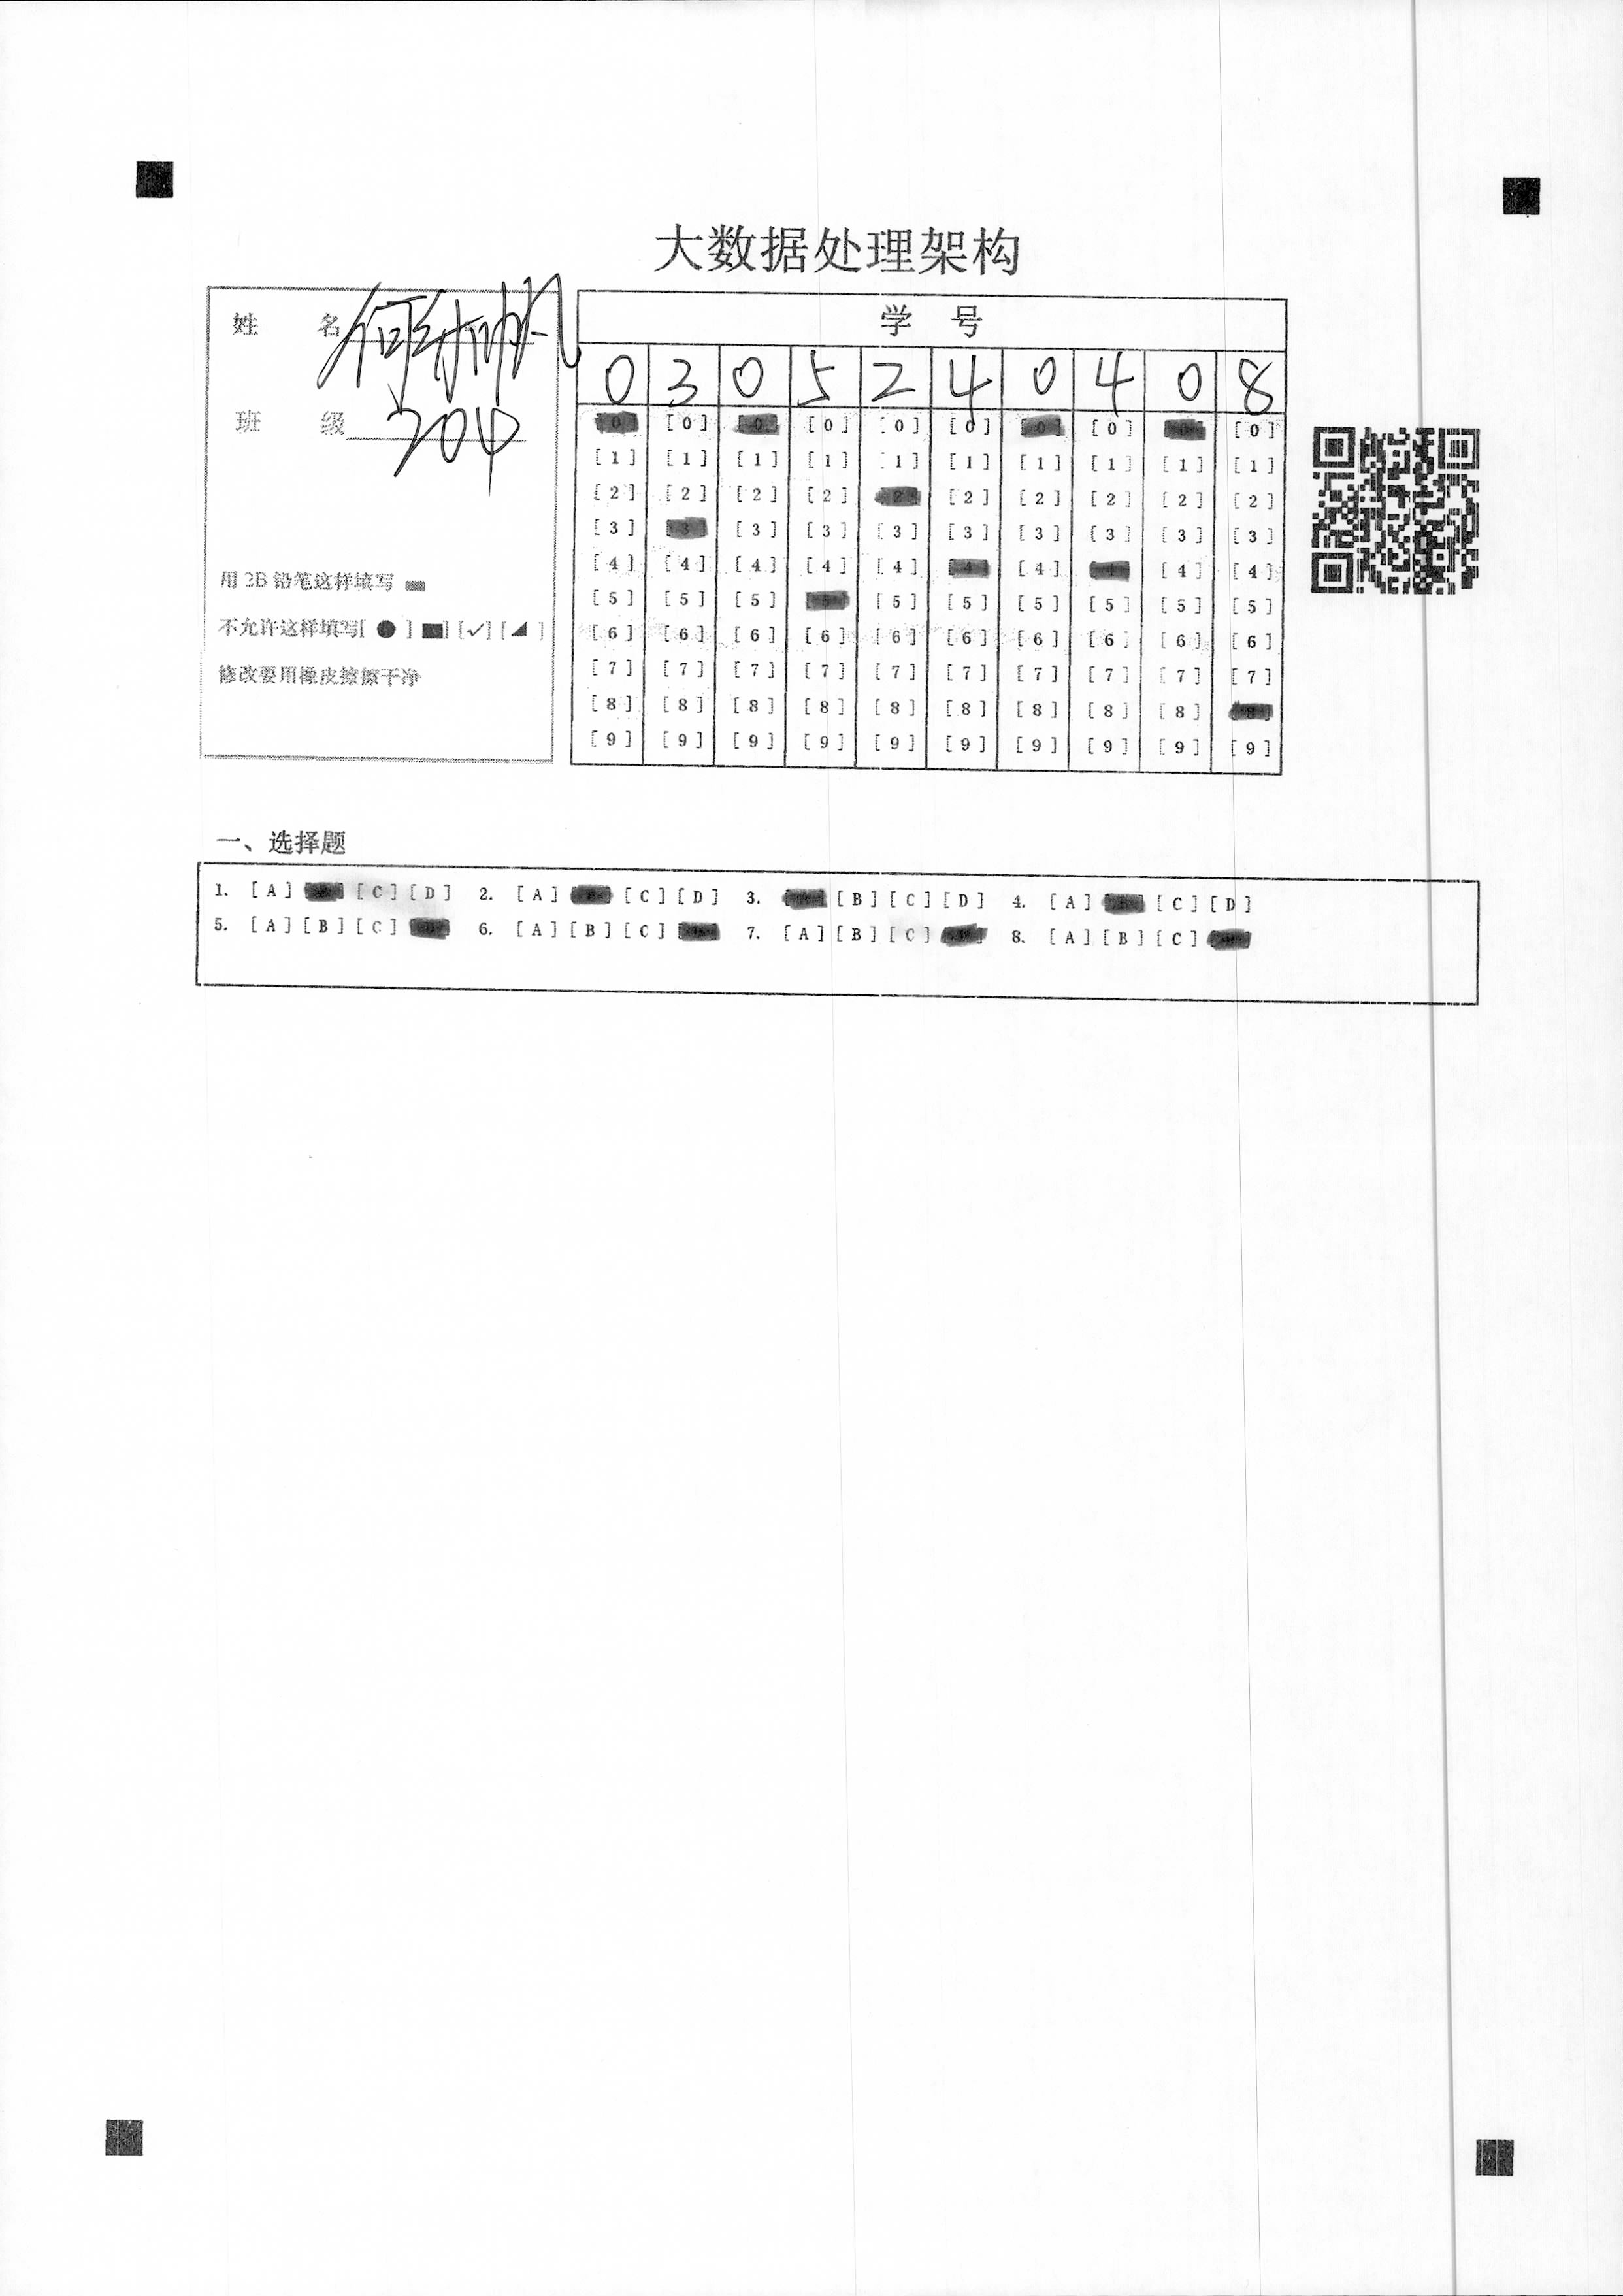 大数据处理架构
姓 名 何
班 级 204
用 2B 铅笔这样填写
不允许这样填写[ ● ] [■] [✓] [◢ ]
修改要用橡皮擦擦干净
学 号
0 3 0 5 2 4 0 4 0 8
[0] [0] [0] [0] [0] [0] [0] [0] [0] [0]
[1] [1] [1] [1] [1] [1] [1] [1] [1] [1]
[2] [2] [2] [2] [2] [2] [2] [2] [2] [2]
[3] [3] [3] [3] [3] [3] [3] [3] [3] [3]
[4] [4] [4] [4] [4] [4] [4] [4] [4] [4]
[5] [5] [5] [5] [5] [5] [5] [5] [5] [5]
[6] [6] [6] [6] [6] [6] [6] [6] [6] [6]
[7] [7] [7] [7] [7] [7] [7] [7] [7] [7]
[8] [8] [8] [8] [8] [8] [8] [8] [8] [8]
[9] [9] [9] [9] [9] [9] [9] [9] [9] [9]
一、选择题
1. [A] [C] [D] 2. [A] [C] [D] 3. [B] [C] [D] 4. [A] [C] [D]
5. [A] [B] [C] 6. [A] [B] [C] 7. [A] [B] [C] 8. [A] [B] [C]